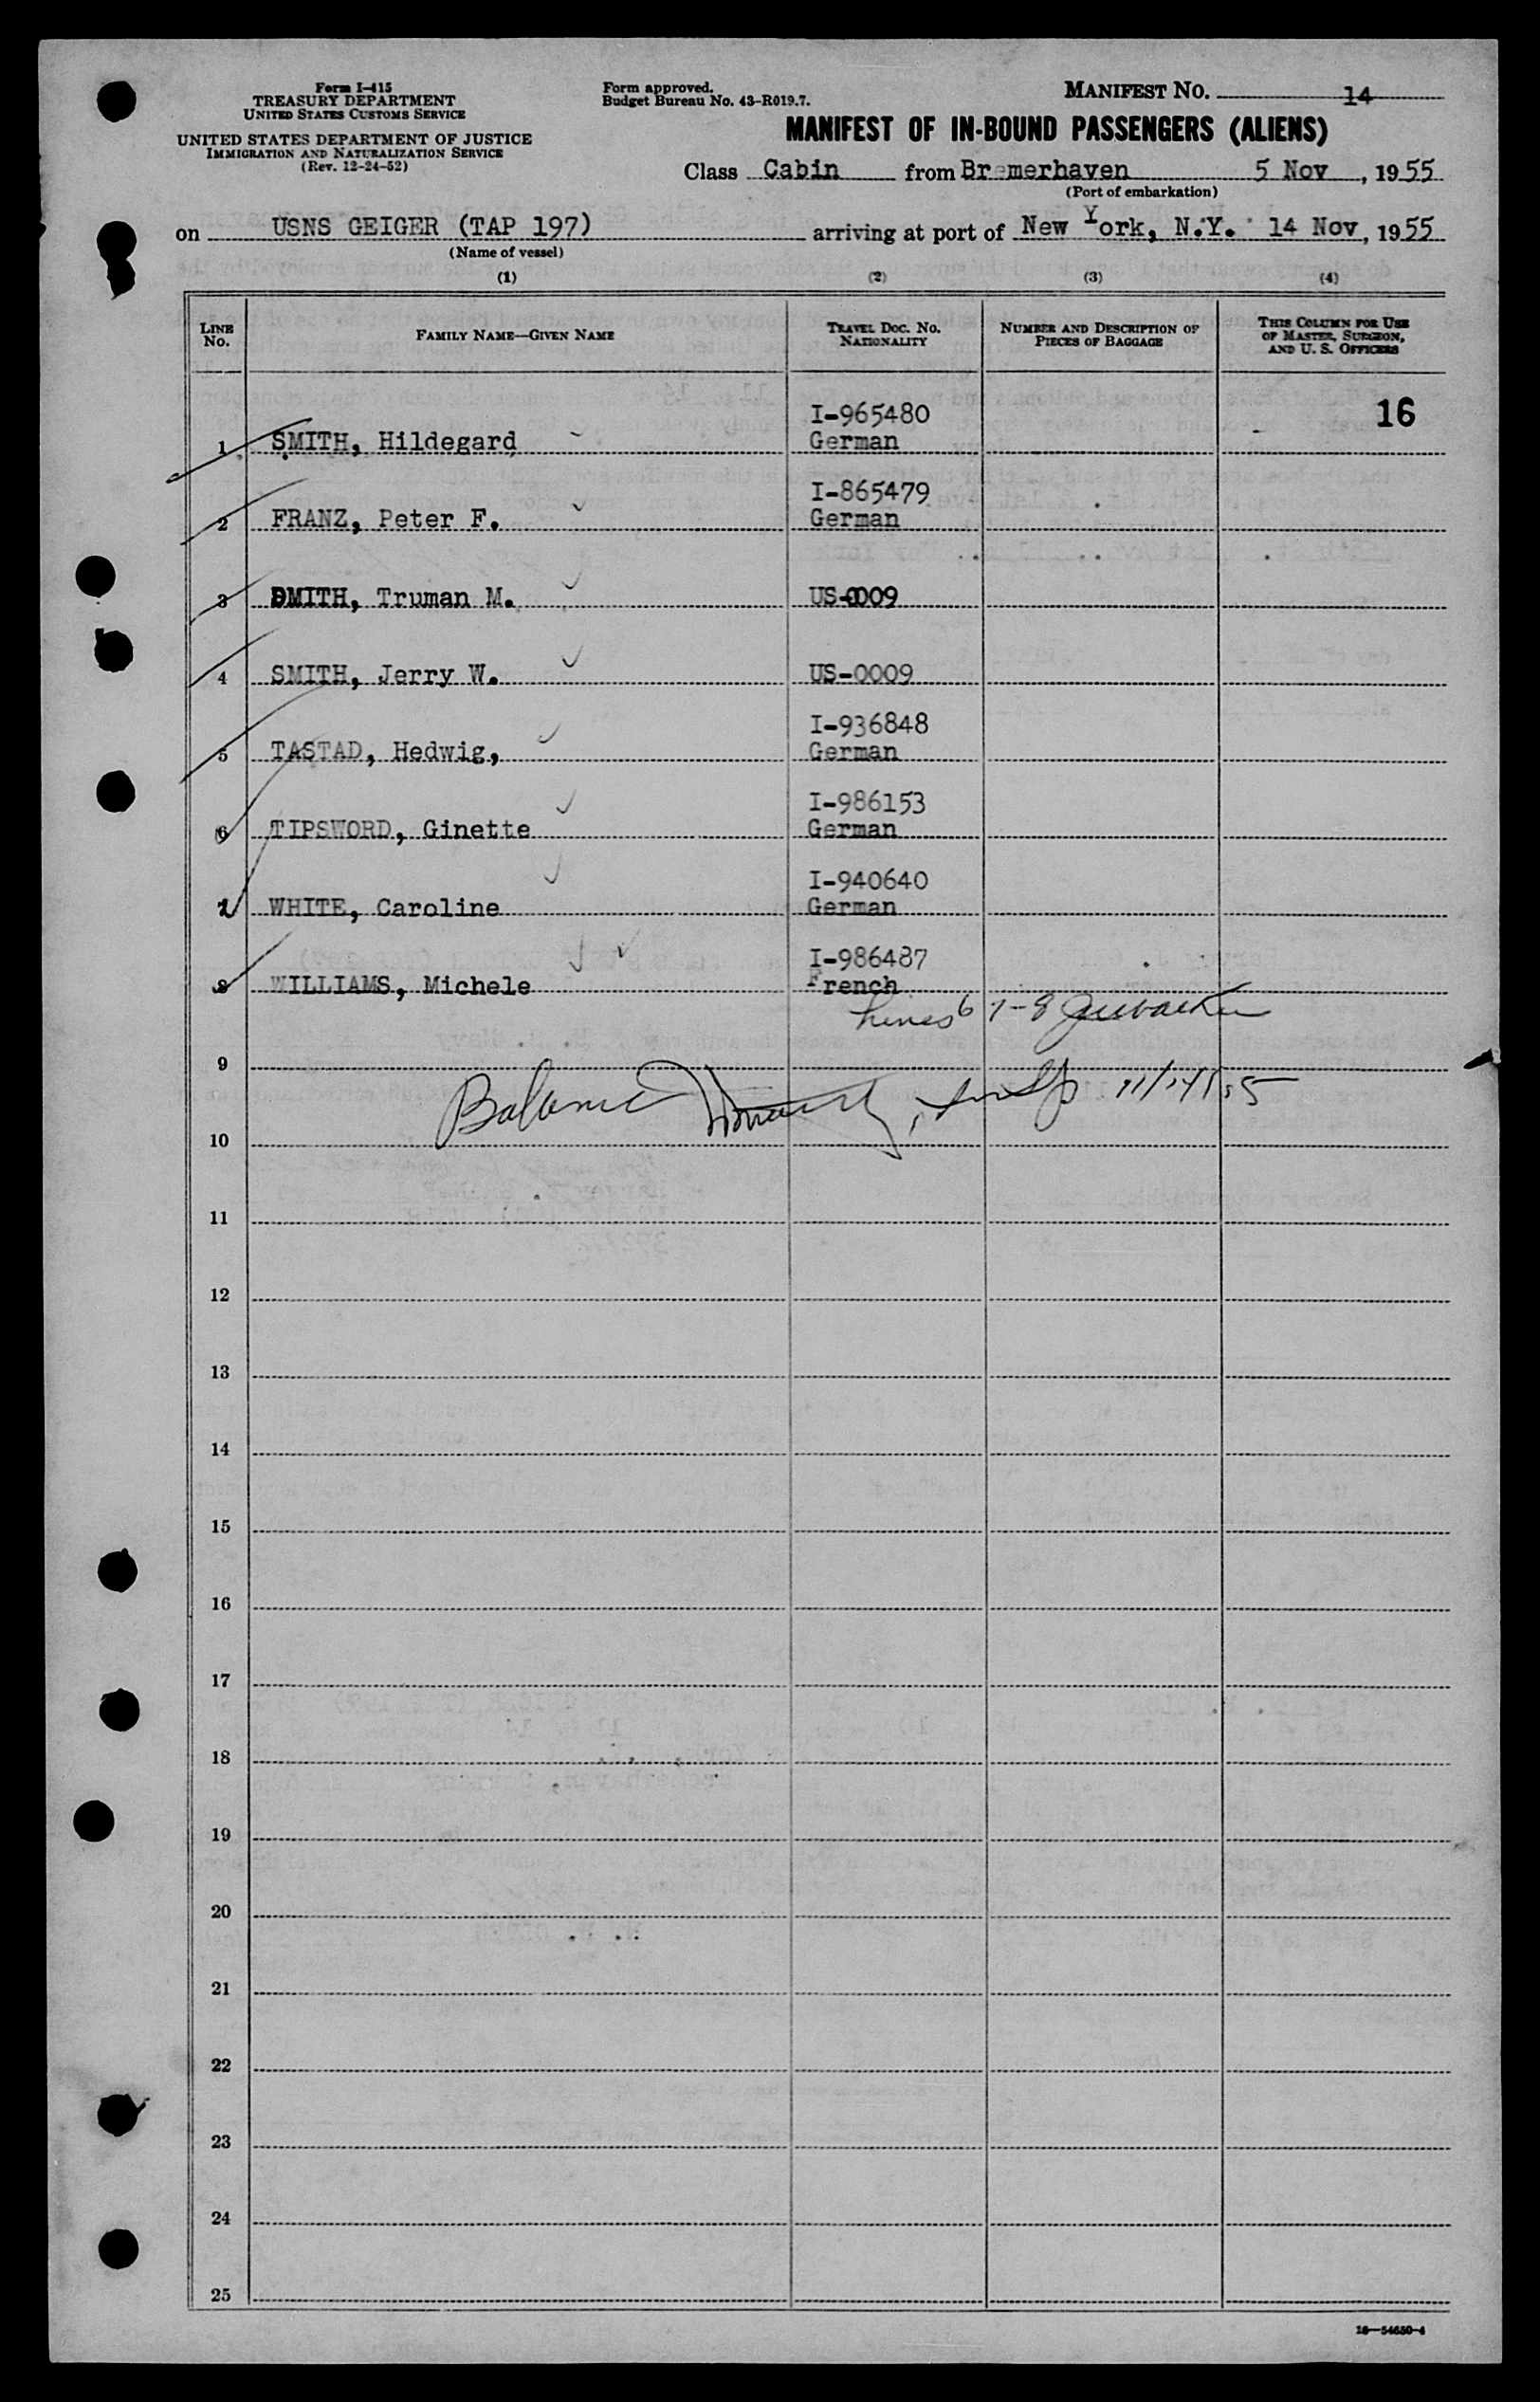 Form I-415
TREASURY DEPARTMENT
UNITED STATES CUSTOMS SERVICE
UNITED STATES DEPARTMENT OF JUSTICE
IMMIGRATION AND NATURALIZATION SERVICE
(Rev. 12-24-52)
Form approved.
Budget Bureau No. 43-R019.7.
MANIFEST NO. 14
MANIFEST OF IN-BOUND PASSENGERS (ALIENS)
Class Cabin from Bremerhaven 5 Nov, 1955
(Port of embarkation)
on USNS GEIGER (TAP 197) arriving at port of New York, N.Y. 14 Nov, 1955
(Name of vessel)
(1) (2) (3) (4)
LINE No. FAMILY NAME—GIVEN NAME TRAVEL DOC. NO. NATIONALITY NUMBER AND DESCRIPTION OF PIECES OF BAGGAGE THIS COLUMN FOR USE OF MASTER, SURGEON, AND U. S. OFFICERS
I-965480 16
1 SMITH, Hildegard German
I-865479
2 FRANZ, Peter F. German
3 DMITH, Truman M. US-0009
4 SMITH, Jerry W. US-0009
I-936848
5 TASTAD, Hedwig, German
I-986153
6 TIPSWORD, Ginette German
I-940640
7 WHITE, Caroline German
I-986487
8 WILLIAMS, Michele French
Lines 6 7-8
9
Balance Insp 11/14/55
10
11
12
13
14
15
16
17
18
19
20
21
22
23
24
25
16—54650-4